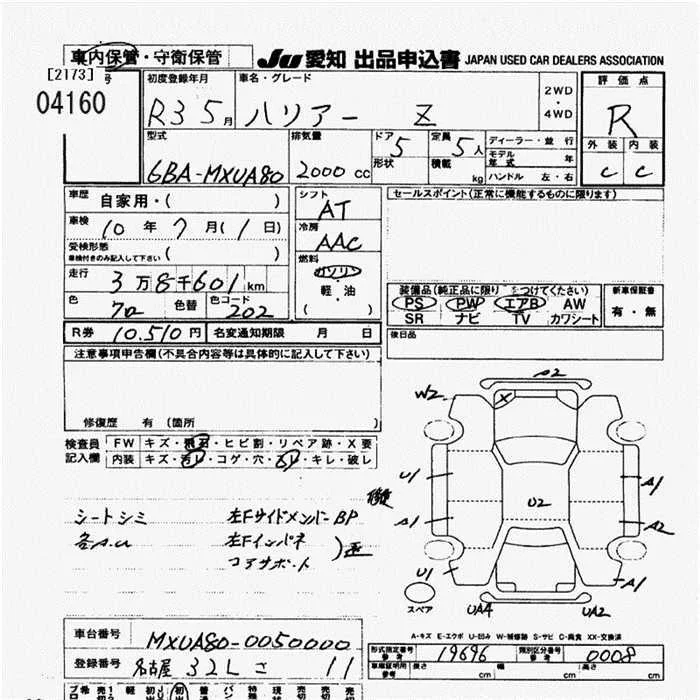 車内保管・守衛保管
JU 愛知 出品申込書 JAPAN USED CAR DEALERS ASSOCIATION
[2173]
号
04160
初度登録年月
R3 5月
車名・グレード
ハリアー Z
2WD
・
4WD
評価点
R
外装 内装
C C
型式
6BA-MXUA80
排気量
2000 cc
ドア 5
形状
定員 5人
積載 kg
ディーラー・並行
モデル年式 年
ハンドル 左・右
車歴 自家用・( )
車検 10年7月(1日)
受検形態
車検付きのみ記入して下さい ( )
走行 3万8千601km
色 色替 色コード 202
シフト
AT
冷房
AAC
燃料
ガソリン
・
軽・油
・
( )
セールスポイント(正常に機能するものに限ります)
装備品(純正品に限り をつけてください)
PS PW エアB AW
SR ナビ TV カワシート
新車保証書
有・無
R券 10,510円 名変通知期限 月 日
後日品
注意事項申告欄(不具合内容等は具体的に記入して下さい)
修復歴 有(箇所 )
検査員 FW キズ・飛石・ヒビ割・リペア跡・X要
記入欄 内装 キズ・汚レ・コゲ・穴・スレ・キレ・破レ
シートシミ 左FサイドメンバーBP
各A.U 左Fインパネ
コアサポート
A2
W2
X
U1
A1
U2
A1
A2
U1
A1
スペア
UA4
UA2
A-キズ E-エクボ U-凹み W-補修跡 S-サビ C-腐食 XX-交換済
車台番号 MXUA80-0050000
登録番号 名古屋 32L さ 11
形式指定番号
参考 19696
類別区分番号
参考 0008
車庫証明用
参考 長さ cm 幅 cm 高さ cm